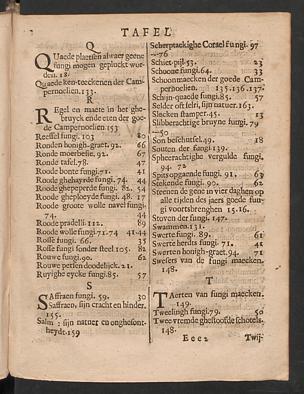 TAFEL
Q
QUaede plaetsen alwaer geene
fungi mogen gepluckt wor-
den. 18.
Quaede ken-teeckenen der Cam-
pernoelien. 133.
R
REgel en maete in het ghe-
bruyck ende eten der goe-
de Campernoelien. 153
Reessel fungi. 103 80
Ronden honigh-graet. 92. 66
Ronde moerbesie. 92. 67
Ronde tafel. 78. 47
Roode bonte fungi. 71. 41
Roode ghehayrde fungi. 74. 44
Roode ghepeperde fungi. 82. 54
Roode gheployde fungi. 48. 17
Roode groote wolle navel fungi.
74. 44
Roode pradelli. 112. 89
Roode wolle fungi. 71.74 41-44
Rosse fungi. 66. 35
Rosse fungi sonder steel 105. 82
Rouwe fungi. 90. 62
Rouwe persen doodelijck. 21.
Ruyighe eycke fungi. 85. 57
S
SAffraen fungi. 59. 30
Saffraen, sijn cracht en hinder.
155.
Salm : sijn natuer en onghesont-
heydt. 159
Scherptackighe Corael fungi. 97
76
Schiet-pijl. 53. 23
Schoone fungi. 64. 33
Schoonmaecken der goede Cam
pernoelien. 135.136.137.
Schijn-quaede fungi. 85. 57
Slecken stamper. 45. 13
Slibberachtige bruyne fungi. 79
50
Son beschutsel. 49. 18
Souten der fungi. 139.
Spheerachtighe vergulde fungi.
94. 72
Stekende fungi. 90. 62
Steenen de gene in vier daghen op
alle tijden des jaers goede fun-
gi voortsbrengen 15.16.
Stoven der fungi. 147.
Swammen. 131.
Swerte fungi. 89. 61
Swerte herdts fungi. 71. 41
Swerten honigh-graet. 94. 71
Swesers van de fungi maecken.
148.
T
TAerten van fungi maecken.
149.
Tweelingh fungi. 79. 50
Twee vremde ghestoofde schotels.
148.
Eee2 Twij-